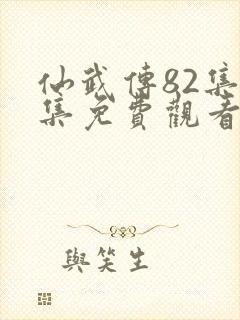 仙武傳82集
集免費觀看
與笑生